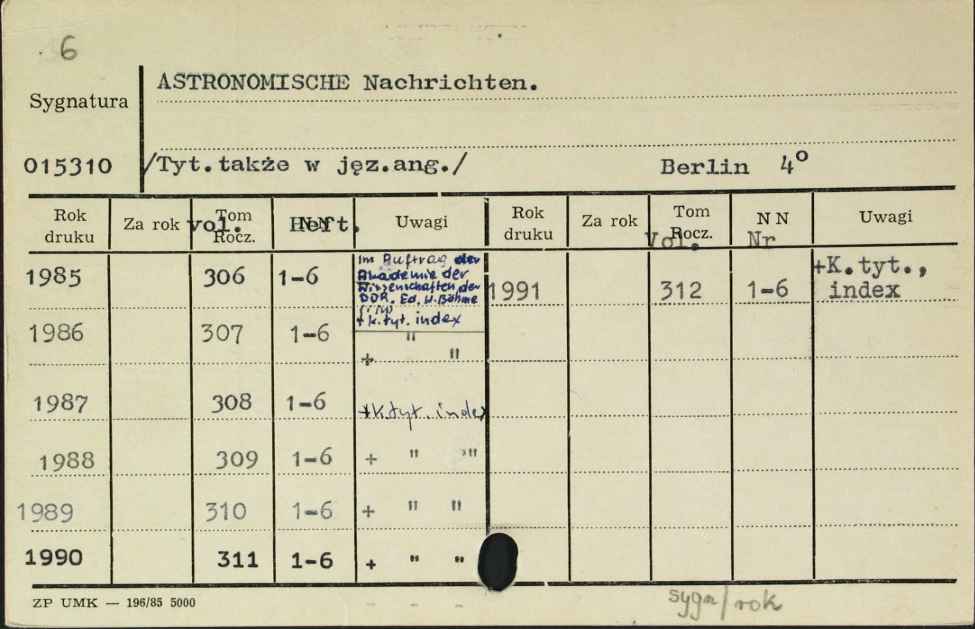 6
ASTRONOMISCHE Nachrichten.
Sygnatura
015310 /Tyt.także w jęz.ang./ Berlin 4°
Rok druku Za rok Tom Rocz. vol. NN Heft. Uwagi Rok druku Za rok Tom Rocz. Vol. NN Nr Uwagi
1985 306 1-6 Im Auftrag der
Akademie der
Wissenschaften der
DDR. Ed. W. Böhme
+ k. tyt. index
1991 312 1-6 +K.tyt.,
index
1986 307 1-6 "
+ "
1987 308 1-6 +k.tyt. index
1988 309 1-6 + " "
1989 310 1-6 + " "
1990 311 1-6 + " "
ZP UMK — 196/85 5000
sygn/rok